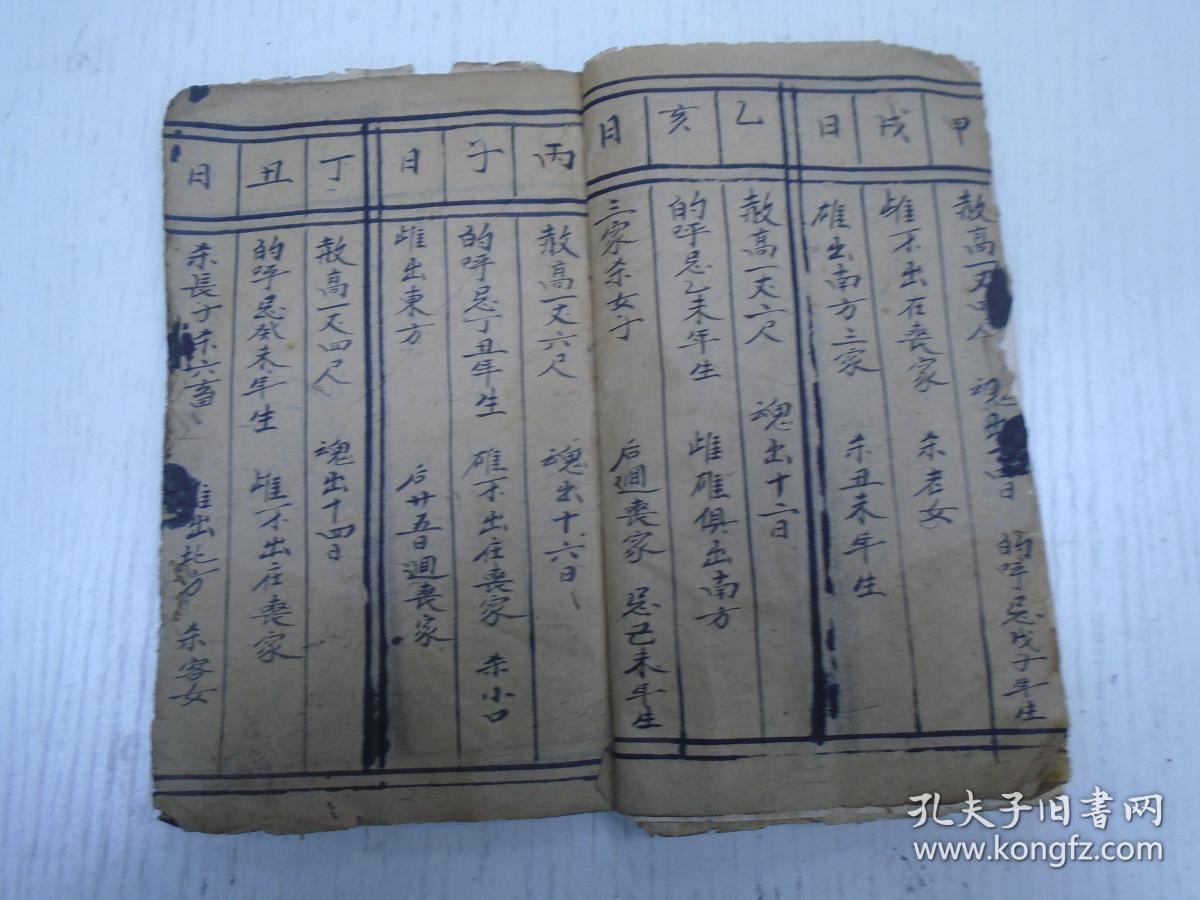 甲戌日
煞高一丈
魂
日 的呼忌戊子年生
雌不出在喪家 杀老女
雄出南方三家 杀丑未年生
乙亥日
煞高一丈二尺 魂出十二日
的呼忌乙未年生 雌雄俱出南方
三家杀女子 后廽喪家 忌己未年生
丙子日
煞高一丈六尺 魂出十六日
的呼忌丁丑年生 雄不出在喪家 杀小口
雌出東方 后廿五日廽喪家
丁丑日
煞高一丈四尺 魂出十四日
的呼忌癸未年生 雌不出在喪家
杀長子杀六畜 出北方 杀客女
孔夫子旧書网
www.kongfz.com